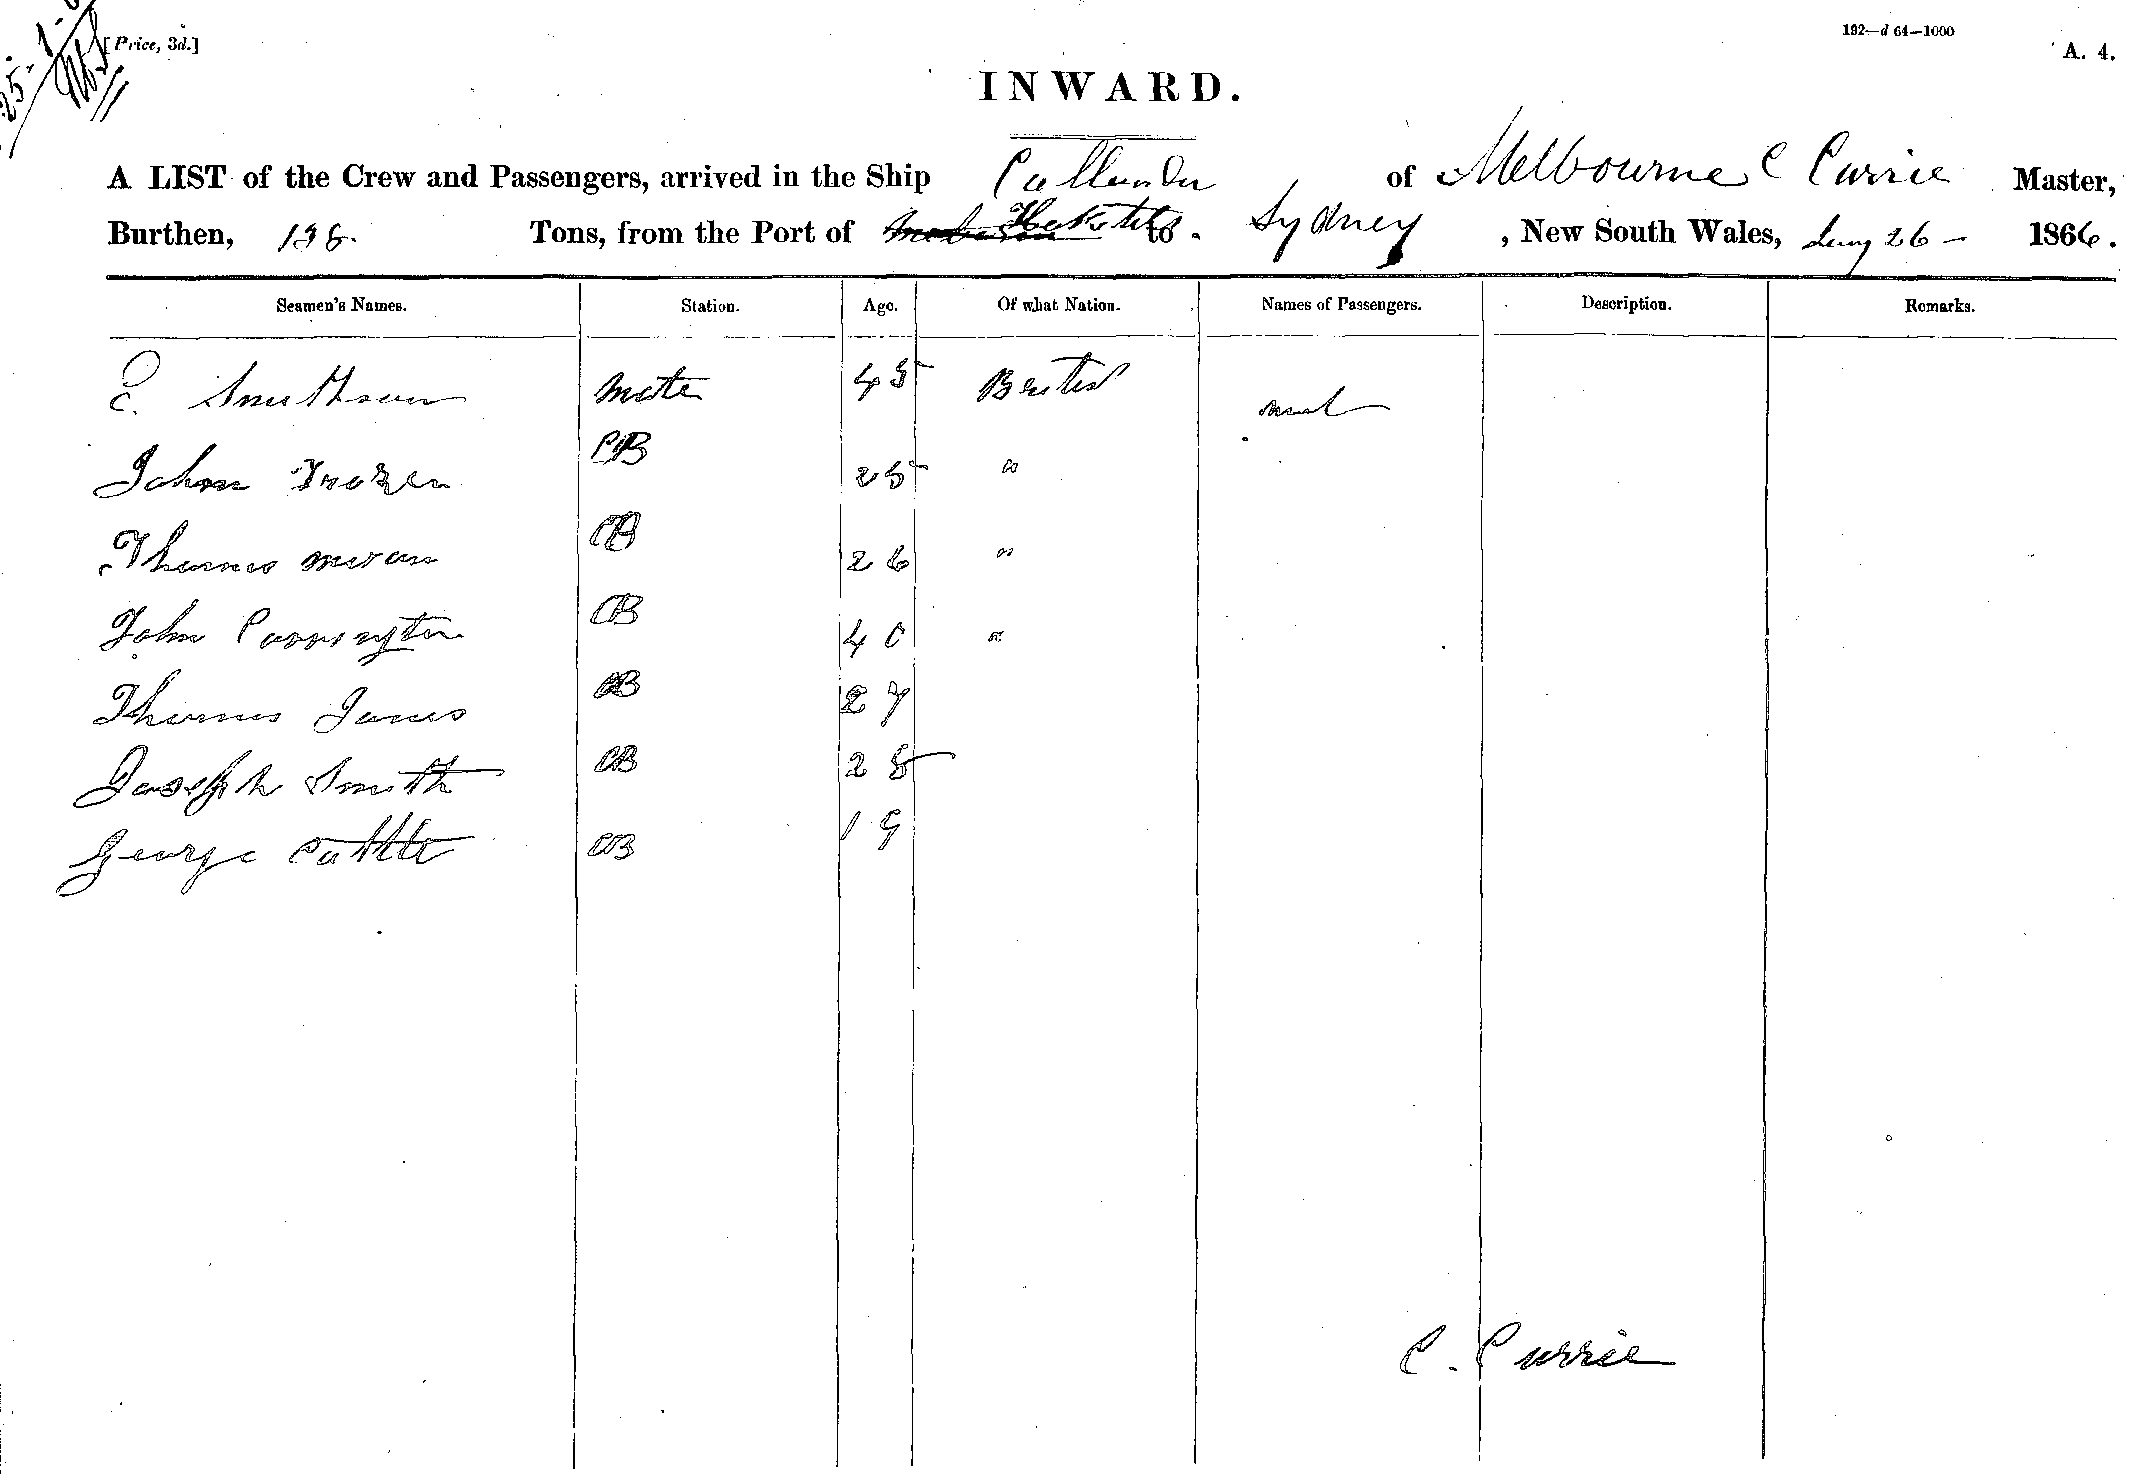 25-1-
[Price, 3d.]
192—d 64—1000
A. 4.
INWARD.
A LIST of the Crew and Passengers, arrived in the Ship Callander of Melbourne C Currie Master,
Burthen, 138. Tons, from the Port of to Sydney, New South Wales, Jany 26 - 1866.
Seamen's Names. Station. Age. Of what Nation. Names of Passengers. Description. Remarks.
E. Smithson Mate 45 British
John 25 "
Thomas 26 "
John 40 "
Thomas Jones AB 27
Joseph Smith AB 25
George Cattle 19
C. Currie